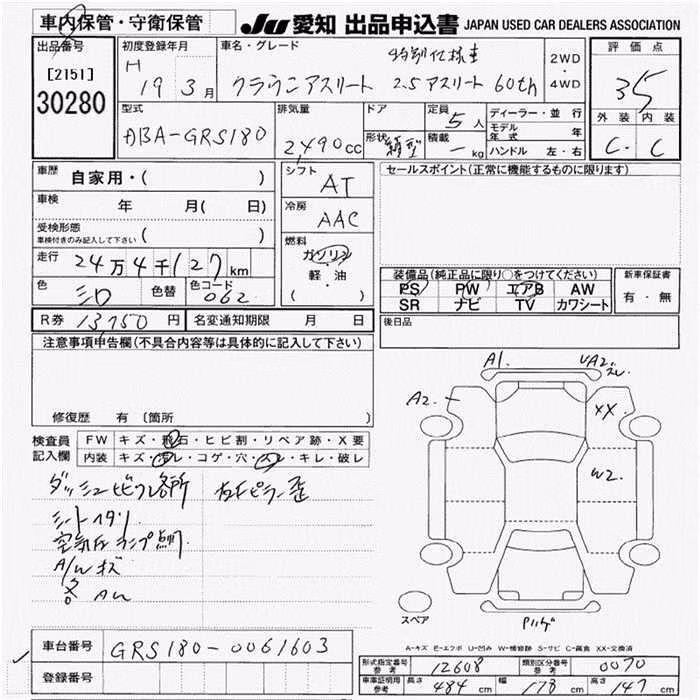 車内保管・守衛保管
JU 愛知 出品申込書 JAPAN USED CAR DEALERS ASSOCIATION
出品番号
[2151]
30280
初度登録年月
H 19 3月
車名・グレード
特別仕様車
クラウンアスリート 2.5 アスリート 60th
2WD
・
4WD
評価点
3.5
外装 内装
C・C
型式
DBA-GRS180
排気量
2,490cc
ドア
形状 箱型
定員 5人
積載 ー kg
ディーラー・並行
モデル年式 年
ハンドル 左・右
車歴 自家用・( )
車検 年 月( 日)
受検形態
車検付きのみ記入して下さい ( )
走行 24万4千127km
色 シロ 色替 色コード 062
シフト AT
冷房 AAC
燃料
ガソリン
・
軽・油
( )
セールスポイント(正常に機能するものに限ります)
装備品(純正品に限り○をつけてください)
PS PW エアB AW
SR ナビ TV カワシート
新車保証書
有・無
R券 13,750円 名変通知期限 月 日
後日品
注意事項申告欄(不具合内容等は具体的に記入して下さい)
修復歴 有 〔箇所 〕
検査員記入欄
FW キズ・飛石・ヒビ割・リペア跡・X要
内装 キズ・汚レ・コゲ・穴・スレ・キレ・破レ
ダッシュヒビワレ各所
シートヘタリ
空気圧ランプ点灯
A/Wキズ
各AU
右Fピラー歪
A1. UA2.
スレ
A2.
XX.
W2.
Pハゲ
スペア
A-キズ E-エクボ U-凹み W-補修跡 S-サビ C-腐食 XX-交換済
車台番号 GRS180-0061603
登録番号
形式指定番号
参考
12608
類別区分番号
参考
0070
車庫証明用
参考
長さ 484cm 幅 178cm 高さ 147cm